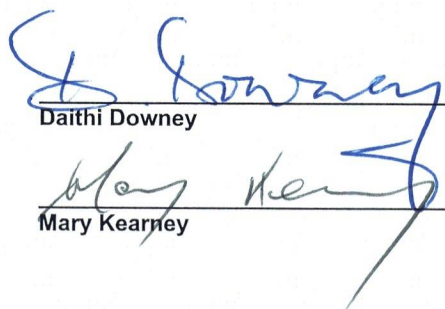 D. Downey
Daithi Downey
Mary Kearney
Mary Kearney